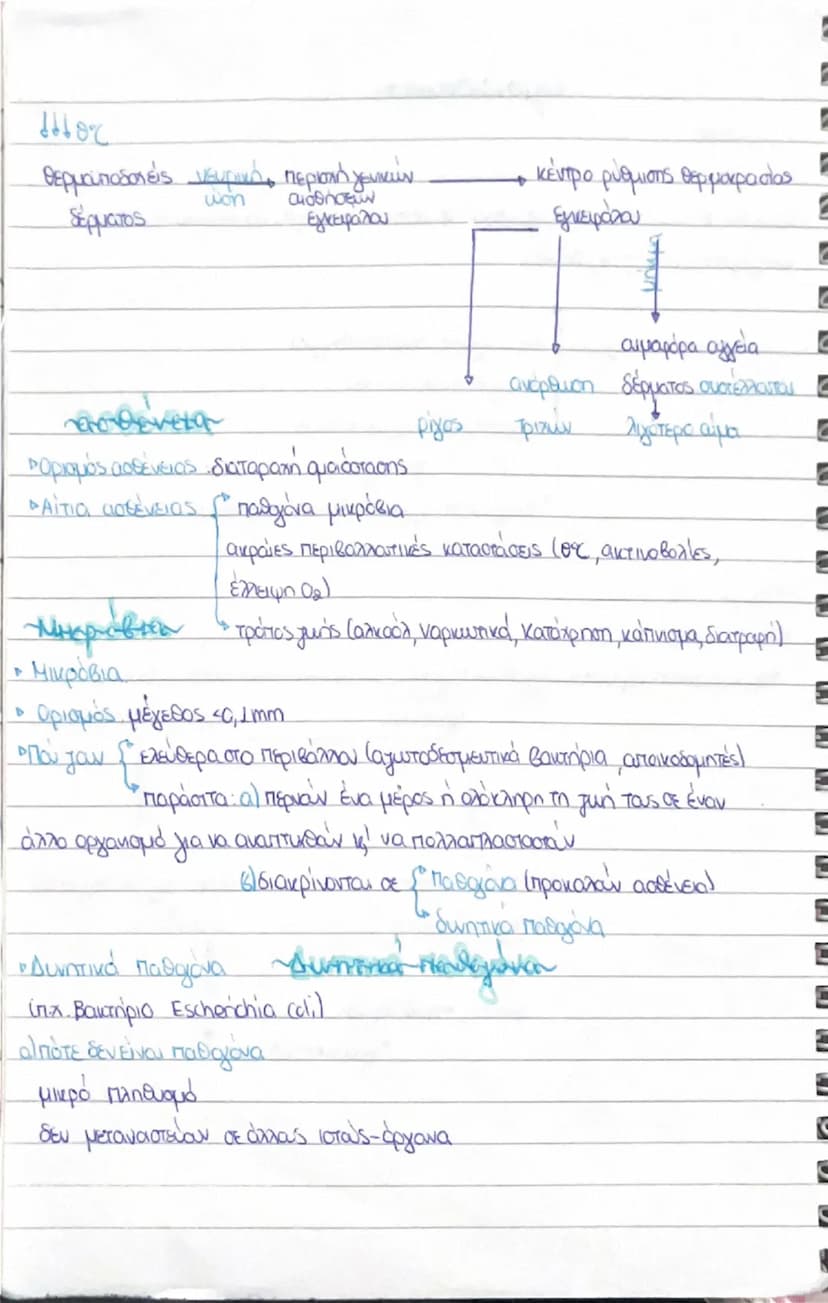 ↓↓↓θ°C
θερμοϋποδοχείς νευρική περιοχή γενικών κέντρο ρύθμισης θερμοκρασίας
ώση αισθήσεων
δέρματος εγκεφάλου εγκεφάλου
μήνυμα
αιμοφόρα αγγεία
ανόρθωση δέρματος συστέλλονται
ασθένεια ρίγος τριχών λιγότερο αίμα
Ορισμός ασθένειας: διαταραχή ομοιόστασης
Αίτια ασθένειας { παθογόνα μικρόβια
ακραίες περιβαλλοντικές καταστάσεις (θ°C, ακτινοβολίες,
έλλειψη O2)
Μικρόβια τρόπος ζωής (αλκοόλ, ναρκωτικά, κατάχρηση, κάπνισμα, διατροφή)
Μικρόβια
Ορισμός μέγεθος <0,1mm
Πού ζουν { ελεύθερα στο περιβάλλον (αζωτοδεσμευτικά βακτήρια, αποικοδομητές)
παράσιτα: α) περνούν ένα μέρος ή ολόκληρη τη ζωή τους σε έναν
άλλο οργανισμό για να αναπτυχθούν κ' να πολλαπλασιαστούν
β) διακρίνονται σε { παθογόνα (προκαλούν ασθένεια)
δυνητικά παθογόνα
Δυνητικά παθογόνα Δυνητικά παθογόνα
(π.χ. Βακτήριο Escherichia coli)
α) πότε δεν είναι παθογόνα
μικρό πληθυσμό
δεν μεταναστεύουν σε άλλους ιστούς-όργανα